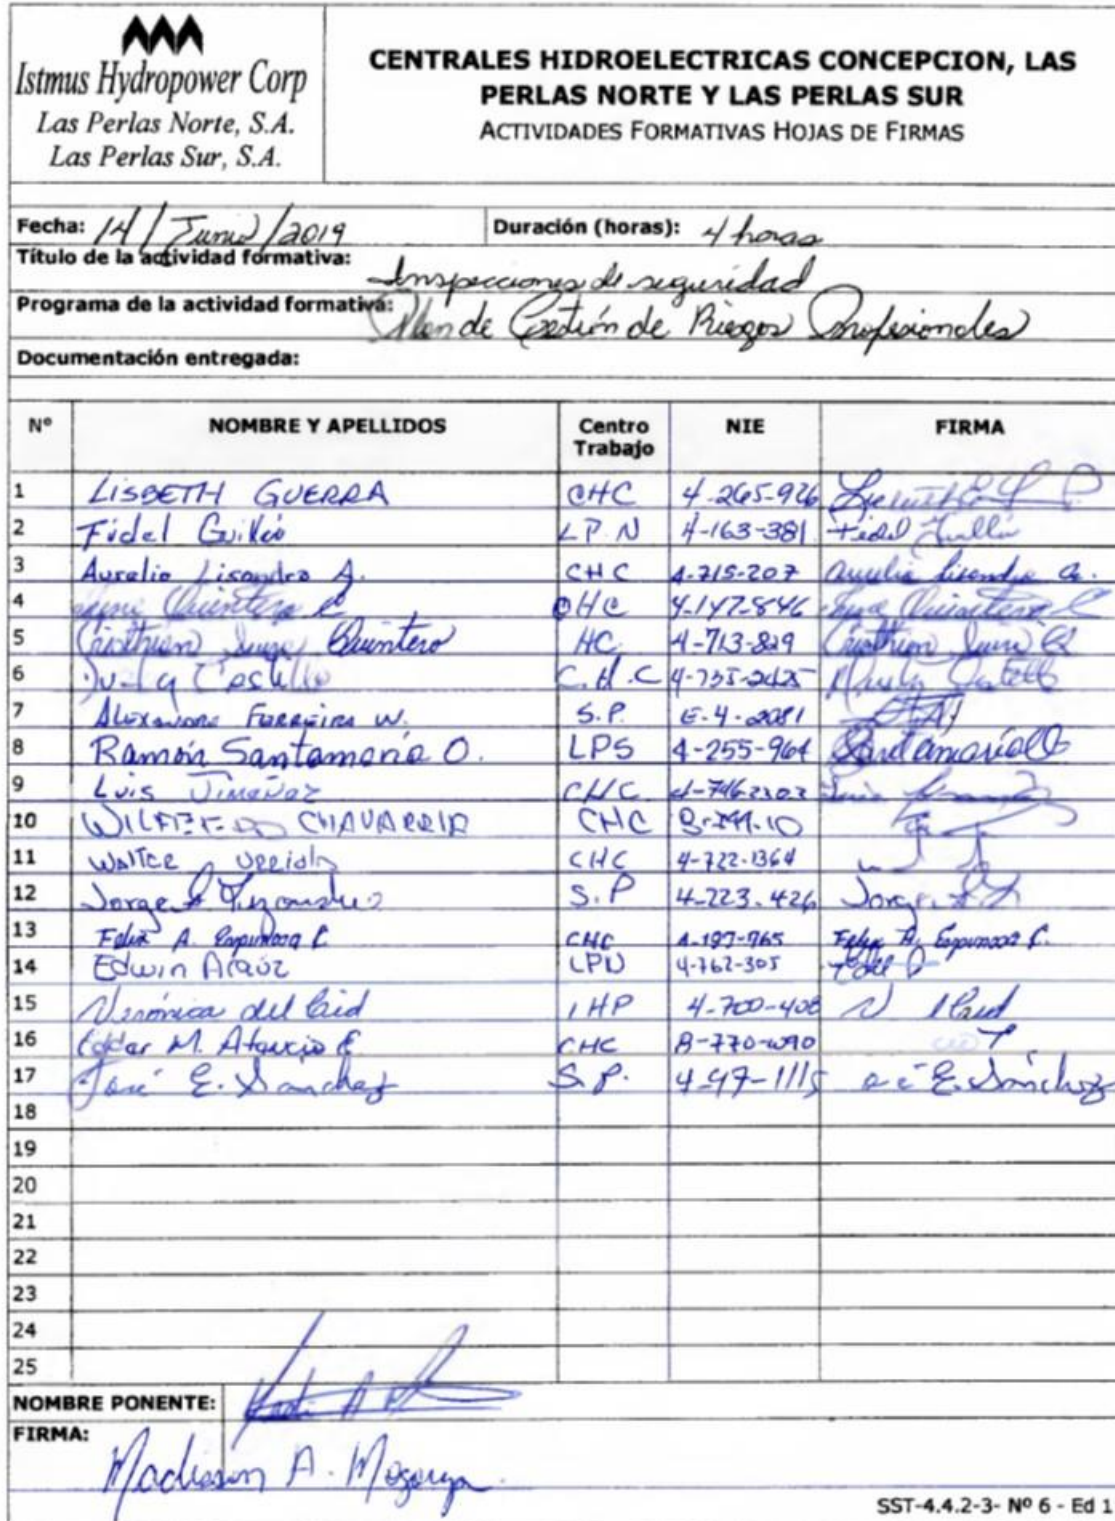 Istmus Hydropower Corp
Las Perlas Norte, S.A.
Las Perlas Sur, S.A.
CENTRALES HIDROELECTRICAS CONCEPCION, LAS
PERLAS NORTE Y LAS PERLAS SUR
ACTIVIDADES FORMATIVAS HOJAS DE FIRMAS
Fecha: 14/Junio/2019 Duración (horas): 4 horas
Título de la actividad formativa: Inspecciones de seguridad
Programa de la actividad formativa: Plan de Gestión de Riesgos Profesionales
Documentación entregada:
Nº NOMBRE Y APELLIDOS Centro Trabajo NIE FIRMA
1 LISBETH GUERRA CHC 4-265-926
2 Fidel LP.N 4-163-381 Fidel
3 Aurelio Lisandro A. CHC 4-715-207 Aurelio Lisandro A.
4 Quintero CHC 4-147-846 Quintero
5 Cristhian Quintero HC 4-713-829 Cristhian
6 Castillo C.H.C 4-735-2425 Castillo
7 Ferreira W. S.P. E-4-2081
8 Ramón Santamaría O. LPS 4-255-964 Santamaría O
9 Luis Jiménez CHC Luis
10 WILFREDO CHAVARRIA CHC
11 WALTER CHC 4-722-1364
12 Jorge S.P 4-223-426 Jorge
13 Felix A. Espinosa C. CHC 4-197-965 Felix A. Espinosa C.
14 Edwin Araúz LPN 4-762-305
15 Verónica del Cid IHP 4-700-408
16 Edgar M. Atencio E CHC
17 José E. Sánchez S.P. 4-97-1115 E. Sánchez
18
19
20
21
22
23
24
25
NOMBRE PONENTE:
FIRMA: Madisson A.
SST-4.4.2-3- Nº 6 - Ed 1